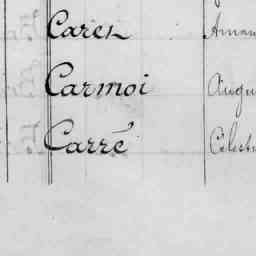 Caren
Carmoi Augu
Carré Célest